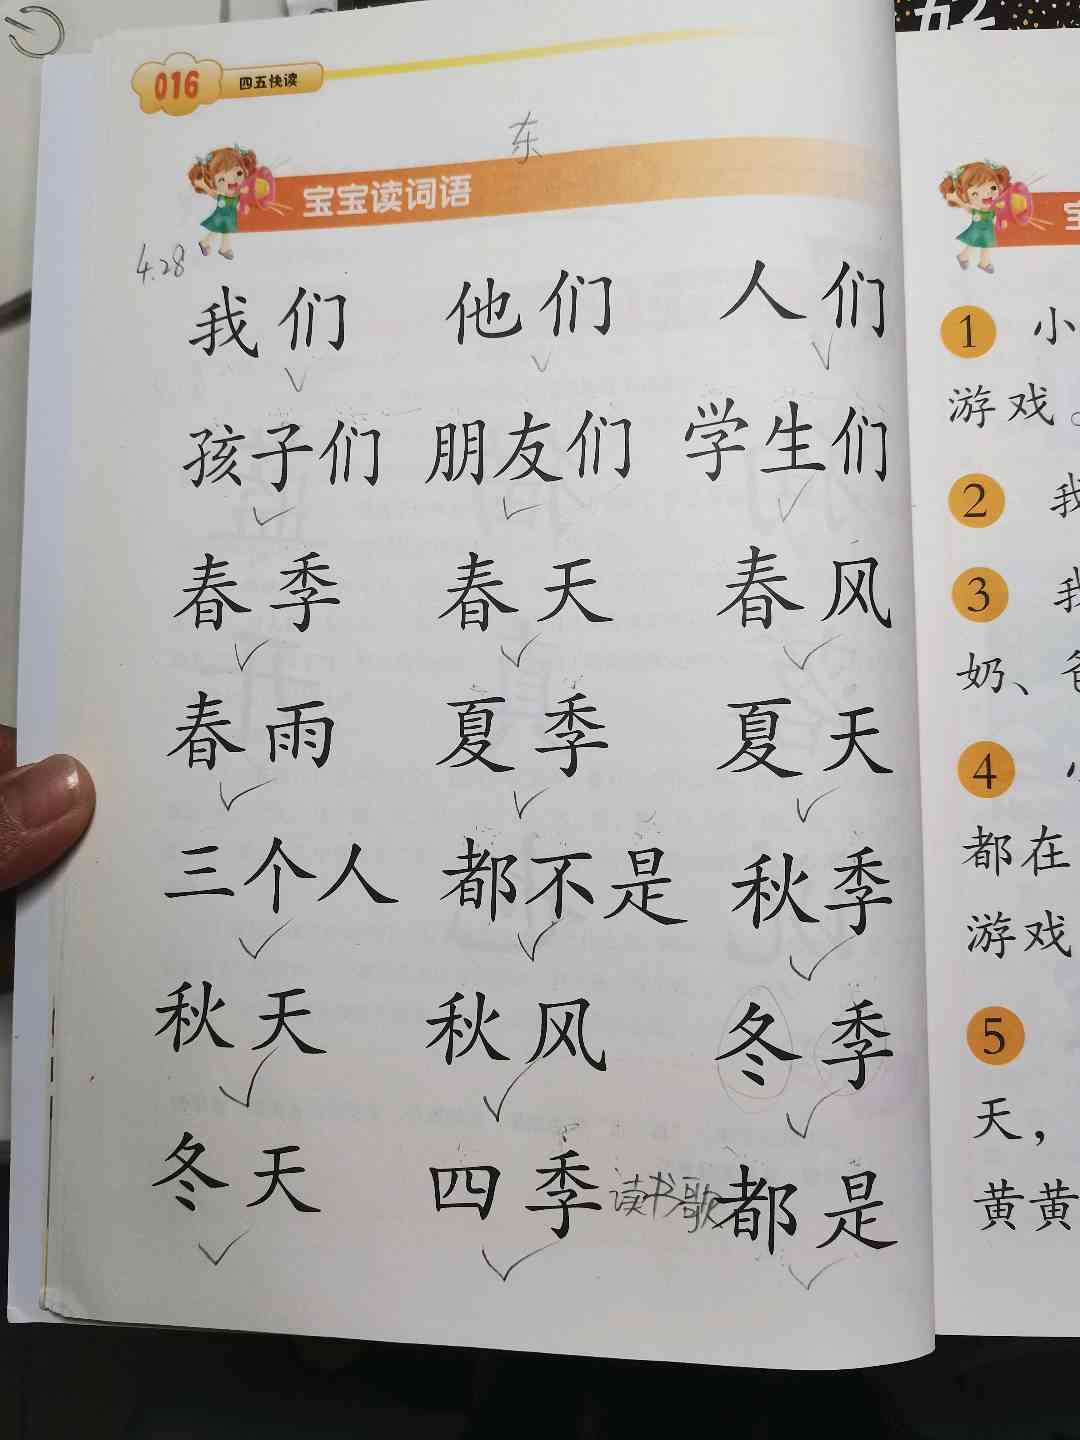 好
016 四五快读
东
宝宝读词语
4.28
我们 他们 人们
孩子们 朋友们 学生们
春季 春天 春风
春雨 夏季 夏天
三个人 都不是 秋季
秋天 秋风 冬季
冬天 四季 读书歌 都是
宝
1 小
游戏。
2 我
3 我
奶、爸
4 小
都在
游戏
5
天，
黄黄